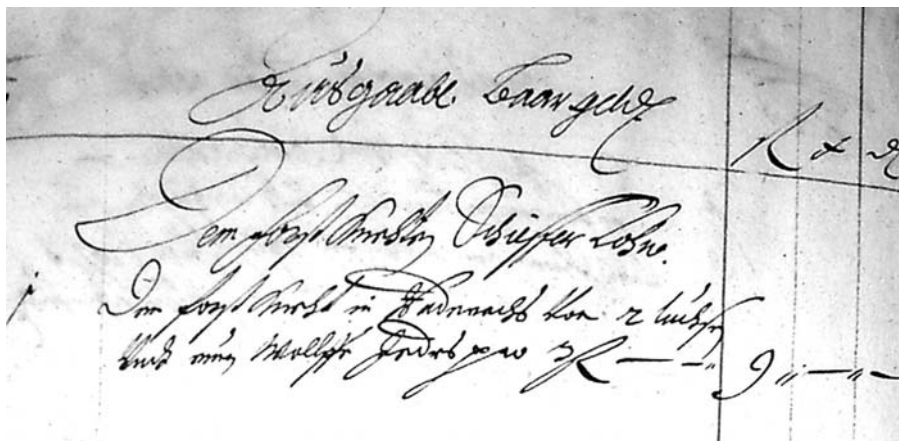 Ausgaabe. Baargeldt
R x ₰
Den forst Knechten Schiesser Lohn.
Dem forst Knecht in Hadenachs Von 2 Luchsen
Und einen Wolffe Jedes pro 3 R — — 9 „ — „ —